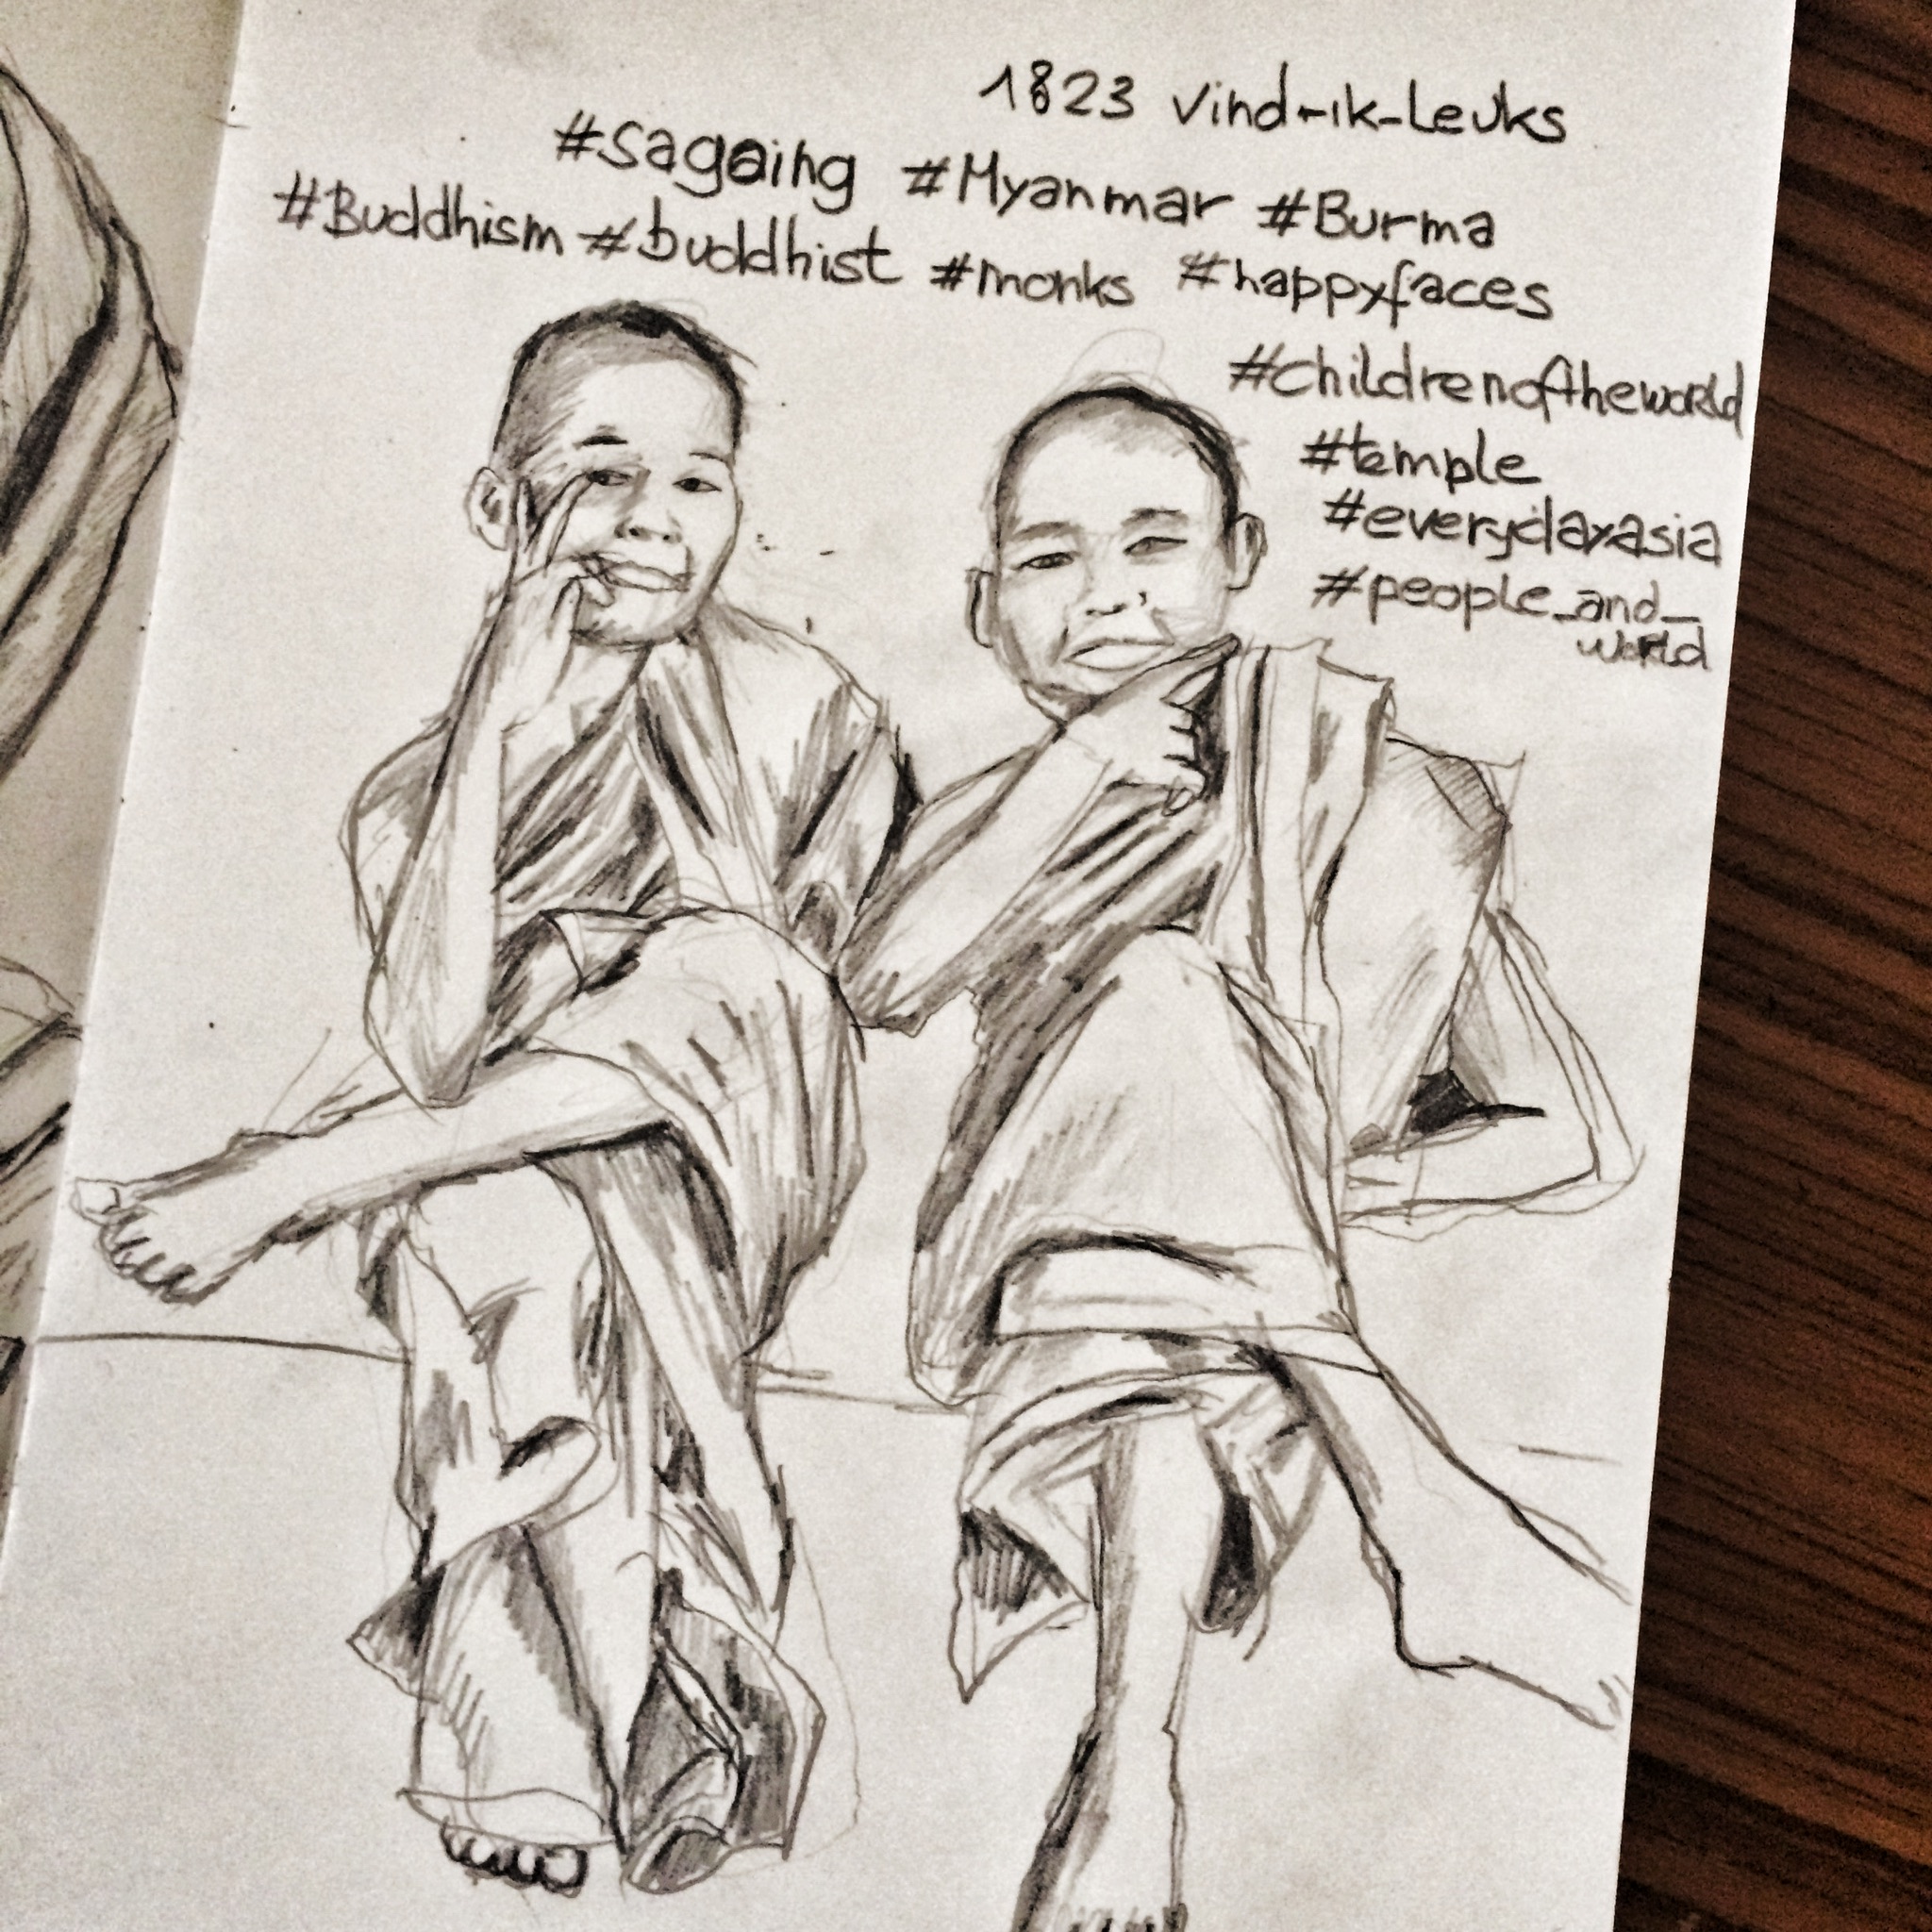 1823 vind-ik-leuks
#Sagaing #Myanmar #Burma
#Buddhism #buddhist #monks #happyfaces
#childrenoftheworld
#temple
#everydayasia
#people_and_
world